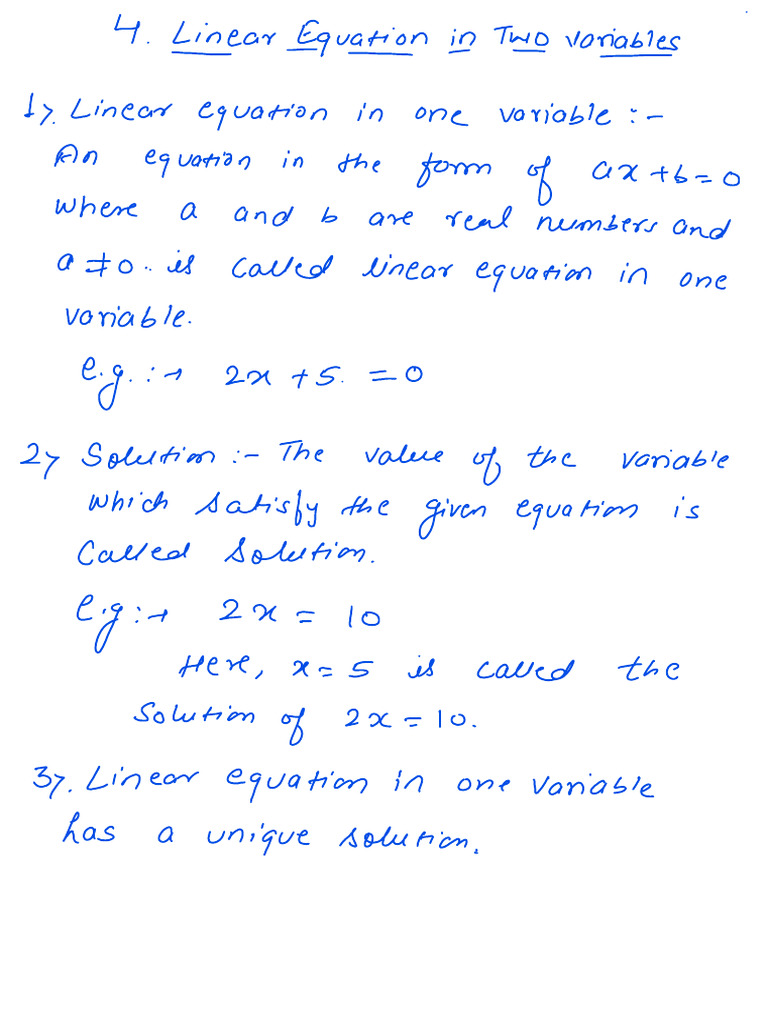 4. Linear Equation in Two variables
1>. Linear equation in one variable :-
An equation in the form of ax + b = 0
where a and b are real numbers and
a ≠ 0 .. is called linear equation in one
variable.
e.g. :→ 2x + 5. = 0
2> Solution :- The value of the variable
which satisfy the given equation is
called solution.
e.g :→ 2x = 10
Here, x = 5 is called the
solution of 2x = 10.
3>. Linear equation in one variable
has a unique solution.